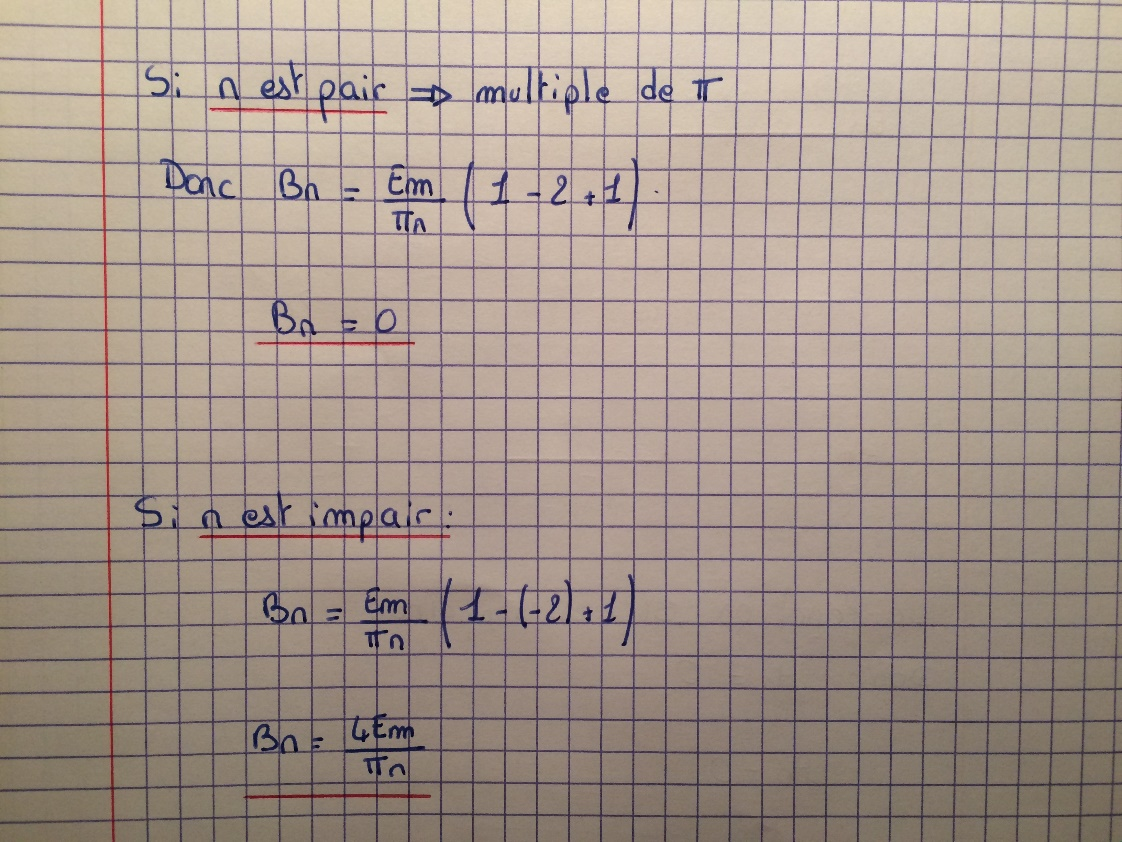 Si n est pair ⇒ multiple de π
Donc Bn = Em/πn ( 1 - 2 + 1 ).
Bn = 0
Si n est impair :
Bn = Em/πn ( 1 - (-2) + 1 )
Bn = 4Em/πn